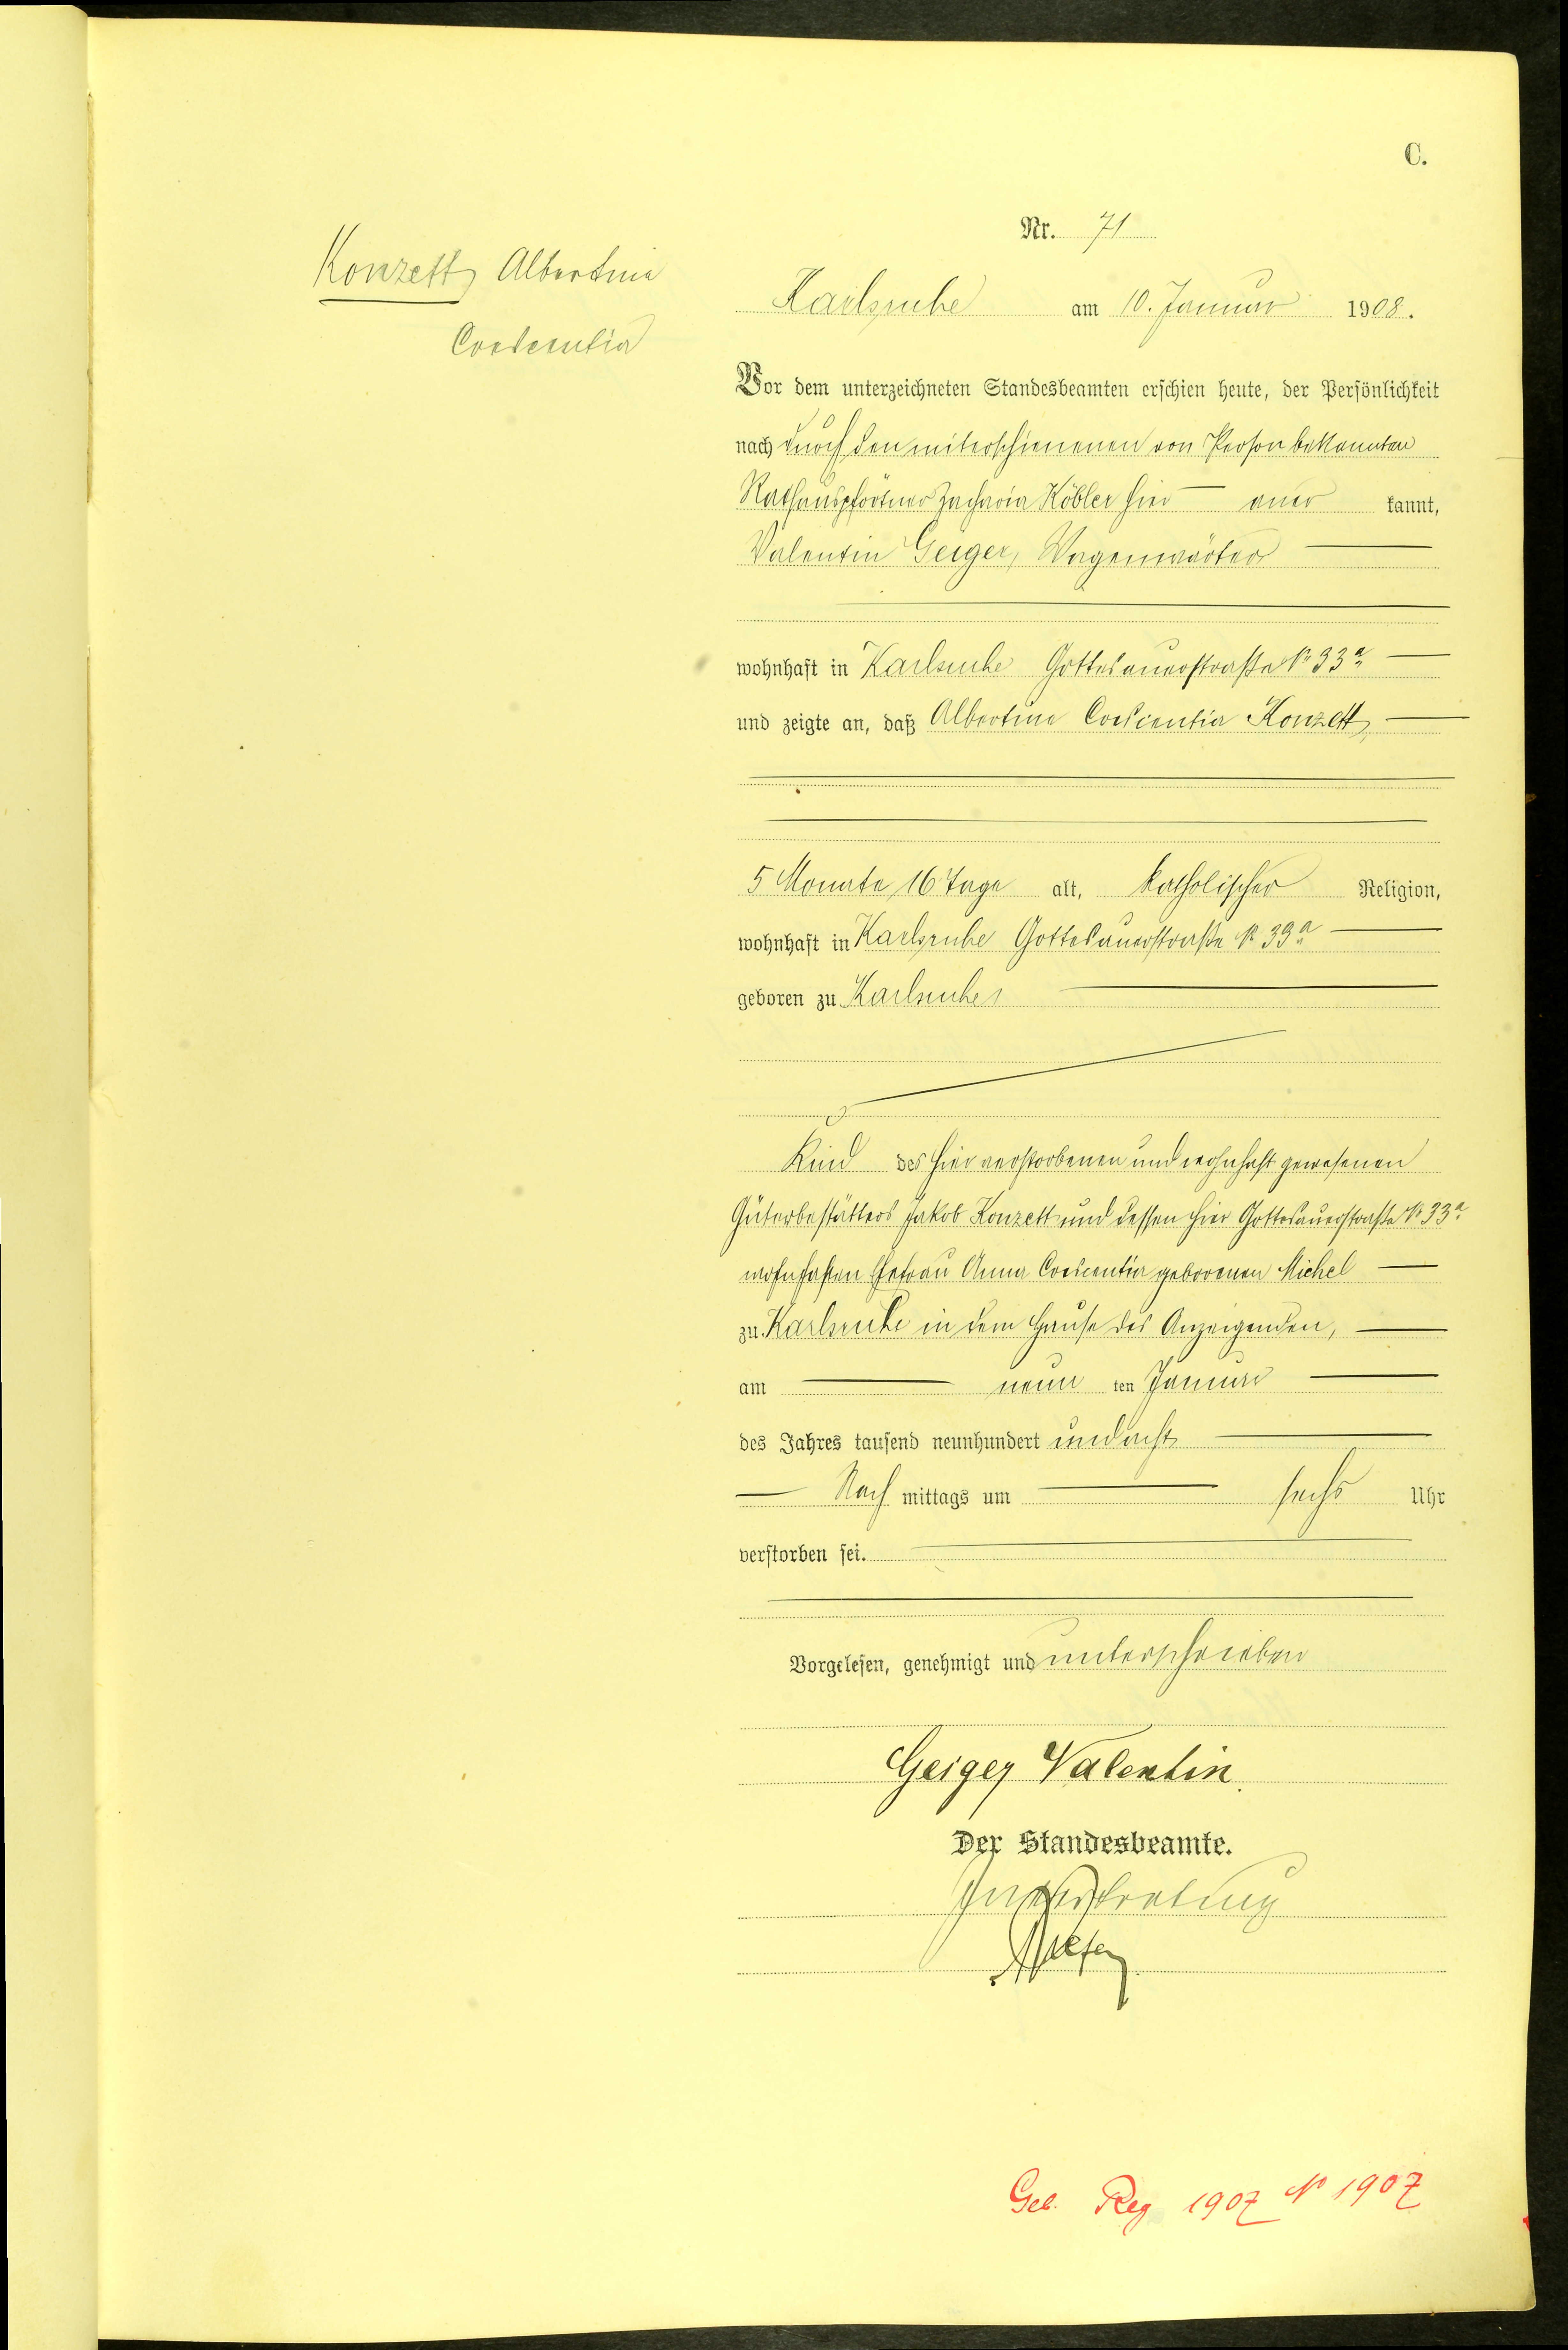 C.
Nr. 71
Konzett Albertina
Crescentia
Karlsruhe am 10. Januar 1908.
Vor dem unterzeichneten Standesbeamten erschien heute, der Persönlichkeit
nach durch den miterschienenen von Person bekannten
Rathauspförtner Zacharia Köbler hier — aner kannt,
Valentin Geiger, Wagenwärter —
wohnhaft in Karlsruhe Gottesauerstraße No 33a —
und zeigte an, daß Albertina Crescentia Konzett, —
5 Monate 16 Tage alt, katholischer Religion,
wohnhaft in Karlsruhe Gottesauerstraße No 33a —
geboren zu Karlsruhe, —
Kind des hier verstorbenen und wohnhaft gewesenen
Güterbestätters Jakob Konzett und dessen hier Gottesauerstraße No 33a
wohnhaften Ehefrau Anna Crescentia geborenen Michel —
zu Karlsruhe in dem Hause des Anzeigenden, —
am — neun ten Januar —
des Jahres tausend neunhundert und acht —
— Nach mittags um — sechs Uhr
verstorben sei.
Vorgelesen, genehmigt und unterschrieben
Geiger Valentin.
Der Standesbeamte.
In Vertretung
Geb. Reg 1907 No 1907